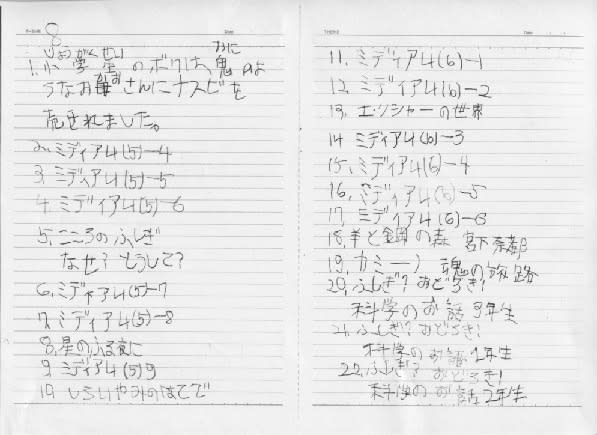 8
しょうがくせい おに
1.小学星のボクは、鬼のよ
うなお母さんにナスビを
売されました。
2.ミディア4(5)-4
3.ミディア4(5)-5
4.ミディア4(5)-6
5.こころのふしぎ
なぜ?もうして?
6.ミディア4(5)-7
7.ミディア4(5)-8
8.星のふる夜に
9 ミディア4(5)9
10
11.ミディア4(6)-1
12.ミディア4(6)-2
13.エッシャーの世界
14 ミディア4(6)-3
15.ミディア4(6)-4
16.ミディア4(6)-5
17.ミディア4(6)-6
18.羊と鋼の森 宮下奈都
19.カミーユ 魂の旅路
20.ふしぎ?おどろき!
科学のお話 3年生
21.ふしぎ?おどろき!
科学のお話 1年生
22.ふしぎ?おどろき!
科学のお話 2年生